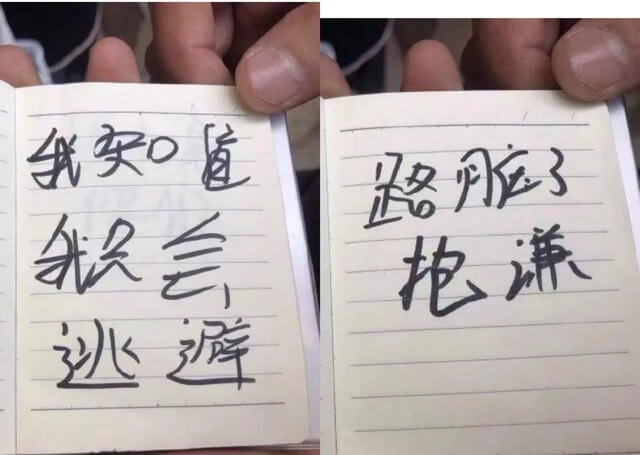 我知道
我只会
逃避
路脏了
抱谦